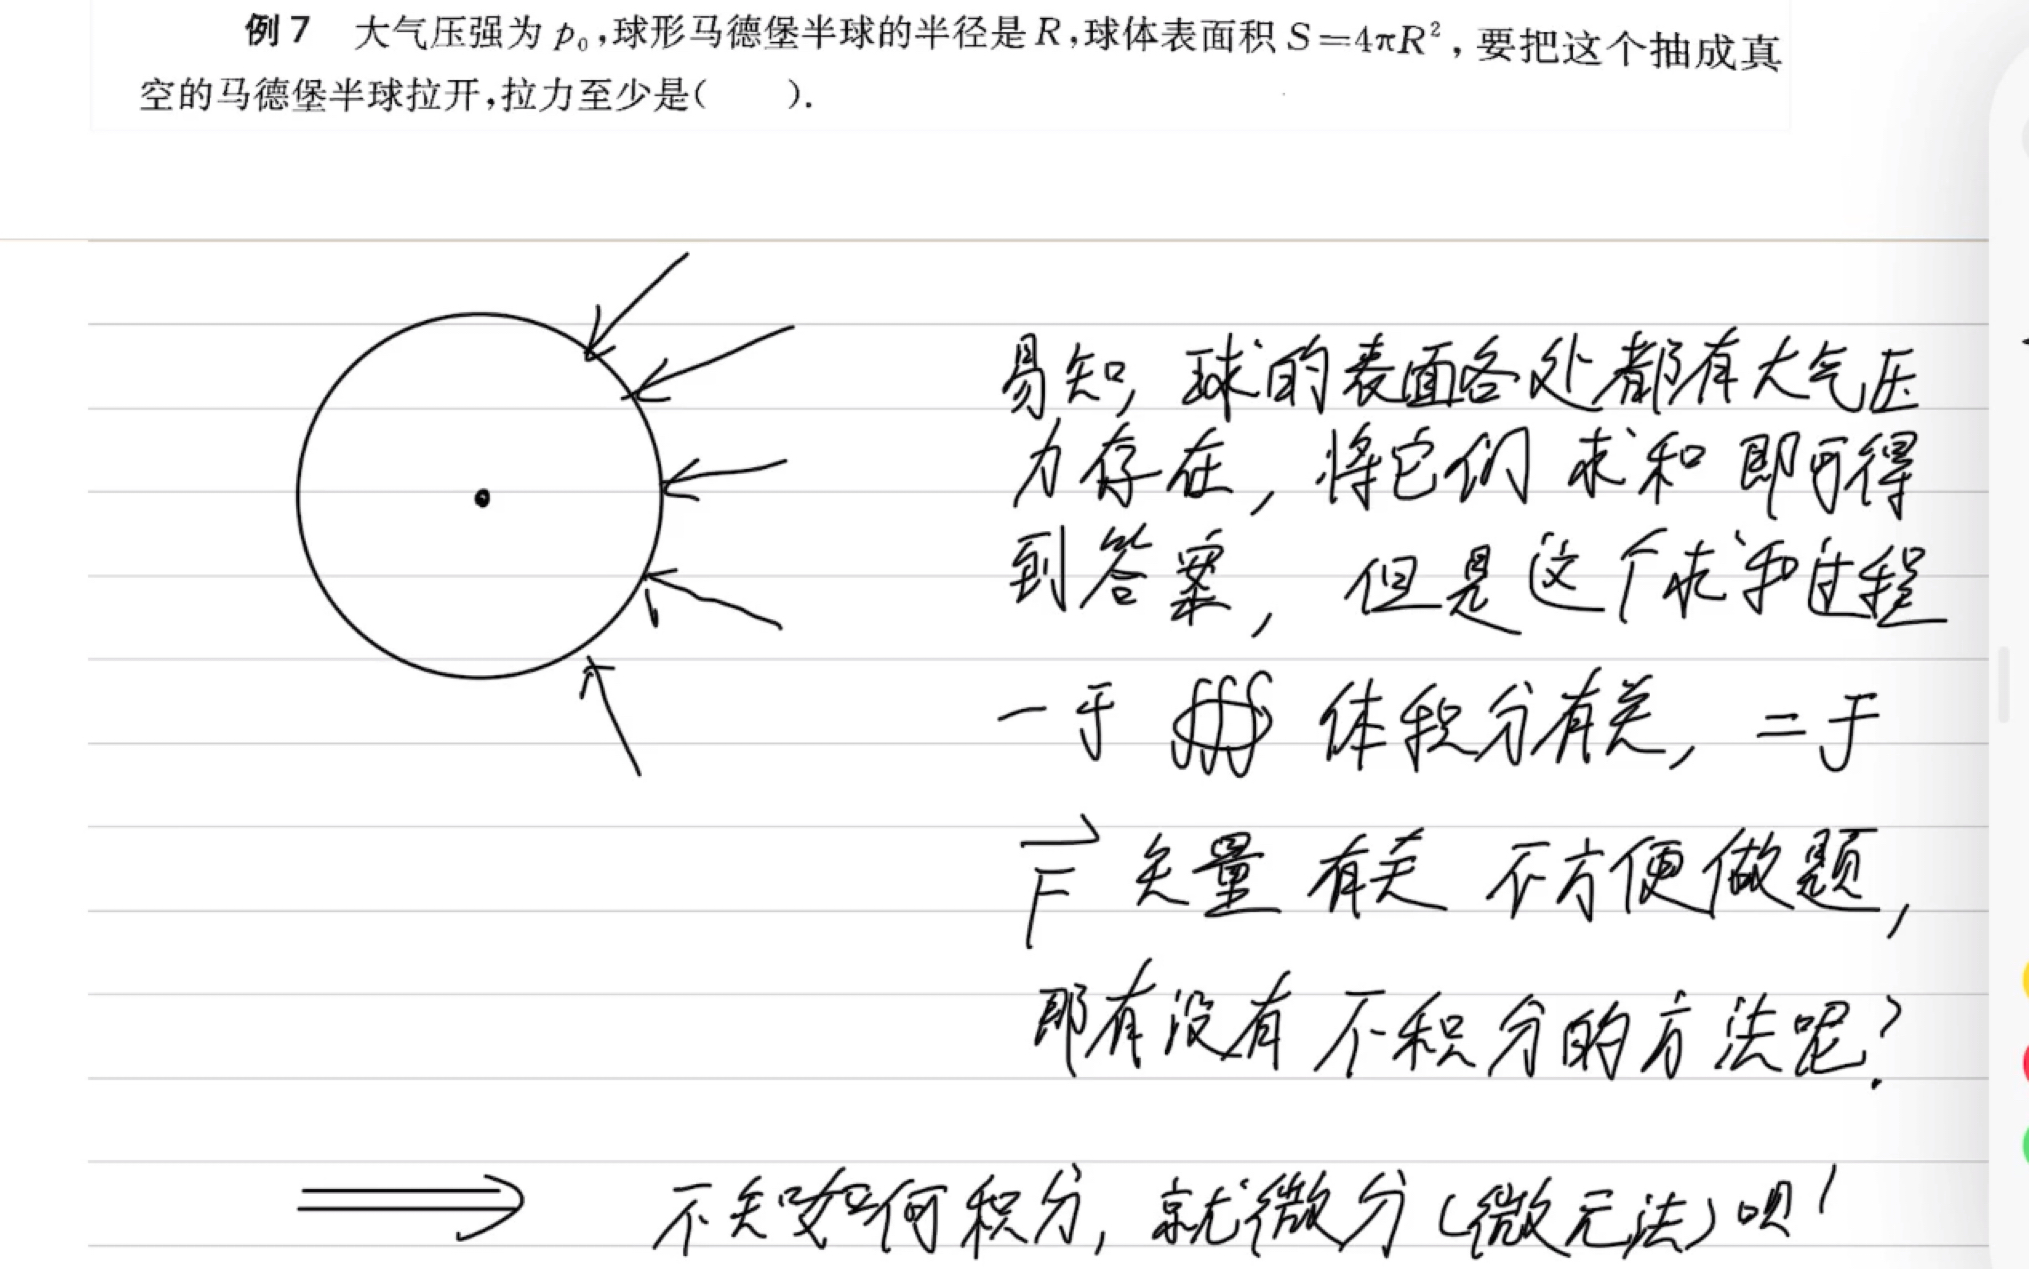 例7 大气压强为 p₀,球形马德堡半球的半径是 R,球体表面积 S=4πR²,要把这个抽成真
空的马德堡半球拉开,拉力至少是( ).
易知, 球的表面各处都有大气压
力存在, 将它们 求和 即可得
到答案, 但是这个求和过程
一于 ∰ 体积分有关, 二于
F⃗ 矢量 有关 不方便做题,
那有没有 不积分的方法呢?
⟹ 不知如何积分, 就微分(微元法)呗!